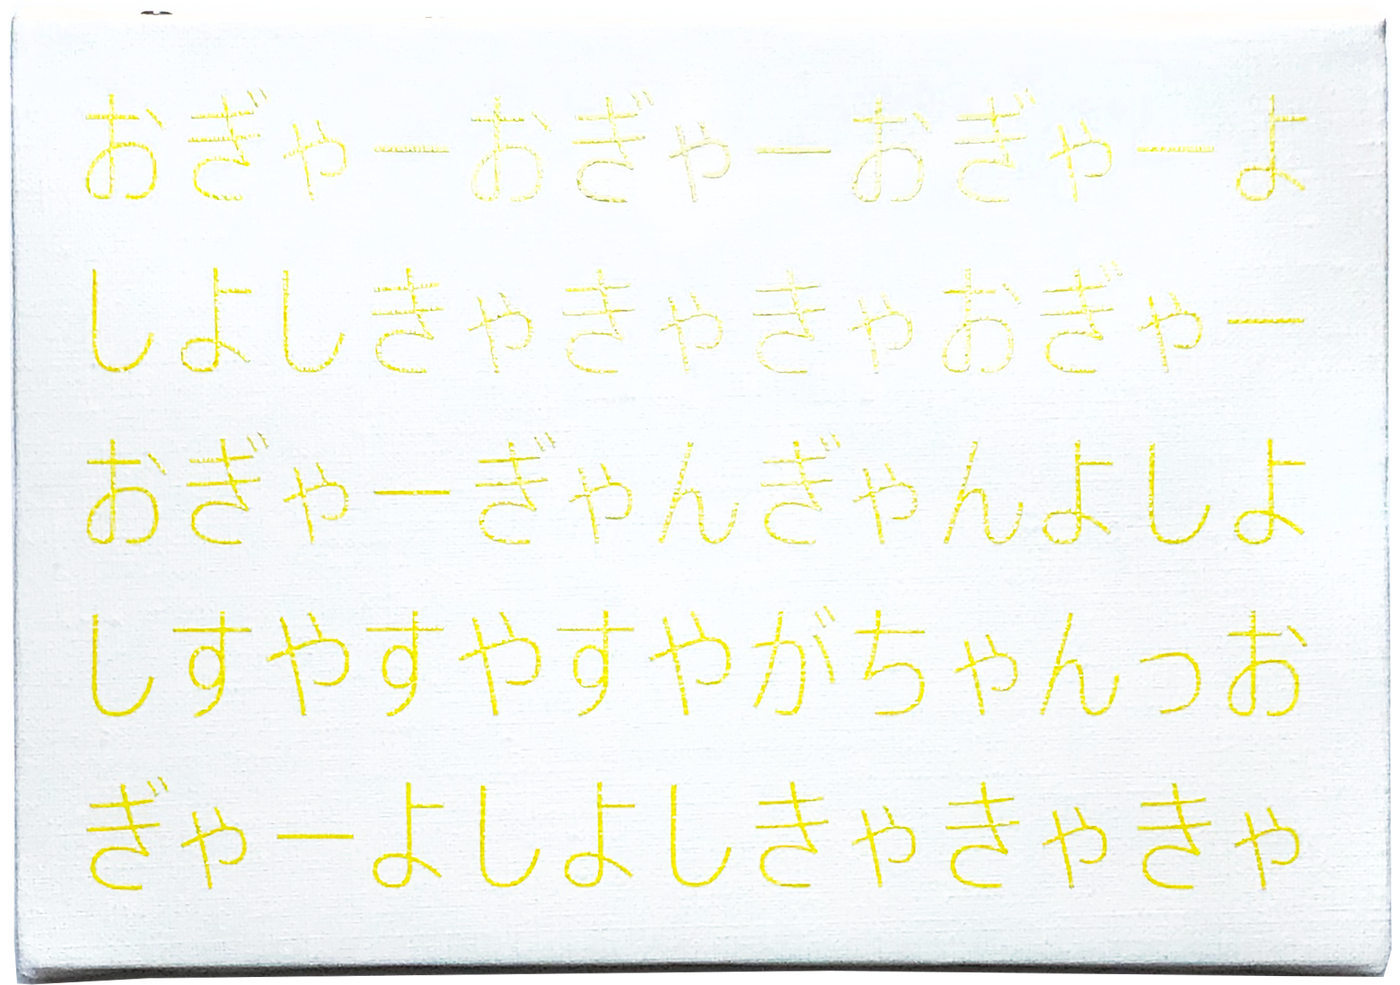 おぎゃーおぎゃーおぎゃーよ
しよしきゃきゃきゃおぎゃー
おぎゃーぎゃんぎゃんよしよ
しすやすやすやがちゃんっお
ぎゃーよしよしきゃきゃきゃ